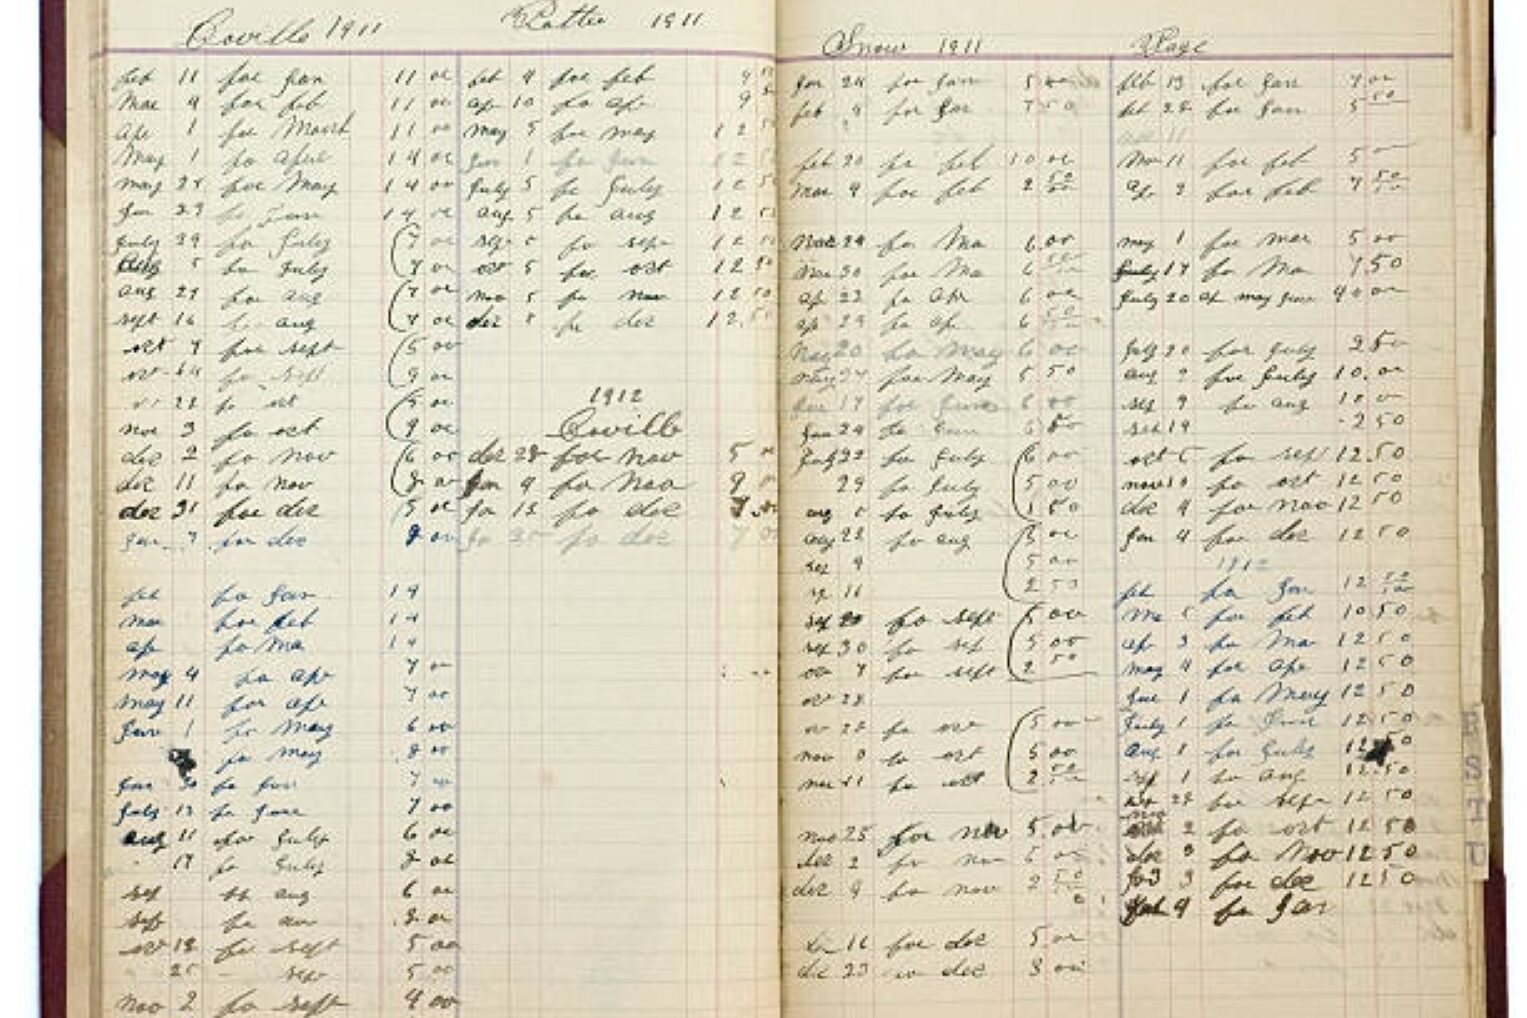 Coville 1911
feb 11 for Jan 11 00
Mar 9 for feb 11 00
ap 1 for March 11 00
May 1 fo april 14 00
may 28 for May 14 00
Jun 29 fo Jun 14 00
July 29 fo July 7 00
5 fo July 7 00
aug 29 fo aug 7 00
sept 16 fo aug 7 00
oct 7 for sept 5 00
fo sept 9 00
fo oct 5 00
nov 3 fo oct 9 00
dec 2 fo nov 6 00
dec 11 fo nov 8 00
dec 31 for dec 5 00
Jan 7 for dec 9 00
feb fo Jan 14
mar for feb 14
ap fo Ma 14
may 4 fo ap 7 00
may 11 for ap 7 00
Jun 1 fo May 6 00
fo may 8 00
Jun 30 fo Jun 7 00
July 13 fo June 7 00
aug 11 for July 6 00
17 fo July 8 00
sep fo aug 6 00
sep fo
oct 18 fo sept 5 00
25 - sep 5 00
nov 2 fo sept 4 00
1911
feb 9 for feb 9
ap 10 fo ap 9
may 5 for may 12 50
Jun 1 fo Jun 12 50
July 5 fo July 12 50
aug 5 fo aug 12 50
sep 5 fo sep 12 50
oct 5 for oct 12 50
nov 5 fo nov 12 50
dec 5 fo dec 12.50
1912
Coville
dec 28 for nov 5 00
Jan 9 fo Nov 9 00
Ja 15 fo dec 7.00
Ja 25 fo dec 7 00
Snow 1911
Jan 24 for Jan 5 00
feb 9 for Jan 7 50
feb 20 fo feb 10 00
Mar 9 for feb 2 50
Mar 24 fo Ma 6 00
Mar 30 for Ma 6 50
ap 23 fo ap 6 00
ap 29 fo ap 6 50
May 20 fo May 6 00
may 27 for May 5 50
Jun 17 for June 6 00
Jun 24 fo Jun
July 22 fo July 6 00
29 fo July 5 00
aug 5 fo July 1 50
aug 22 fo aug 5 00
sep 9 5 00
sep 16 2 50
sep 20 fo sept 5 00
sep 30 fo sep 5 00
oct 7 for sept 2 50
oct 28
oct 28 fo oct 5 00
nov 8 fo oct 5 00
nov 11 fo oct 2 50
nov 25 for nov 5.00
dec 2 fo nov 5 00
dec 9 fo nov 2 50
16 for dec 5 00
dec 23 fo dec 3 00
Page
feb 13 for Jan 7 00
feb 28 for Jan 5 50
Mar 11 for feb 5 00
ap 3 for feb 7 50
may 1 for mar 5 00
July 17 fo Ma 7.50
July 20 ap may June 40 00
July 20 for July 2 50
aug 9 for July 10.00
sep 9 fo aug 10 00
sep 19 2 50
oct 5 for sep 12.50
nov 10 fo oct 12 50
dec 9 for nov 12 50
Jan 4 fo dec 12 50
1912
feb fo Jan 12 50
Ma 5 for feb 10.50
ap 3 fo Ma 12 50
may 4 for ap 12.50
June 1 fo May 12 50
July 1 fo June 12.50
Aug 1 for July 12 50
sep 1 fo aug 12.50
28 for sep 12 50
nov 2 fo oct 12 50
dec 3 fo Nov 12 50
Ja 3 for dec 12 50
feb 9 fo Jan
B
S
T
U